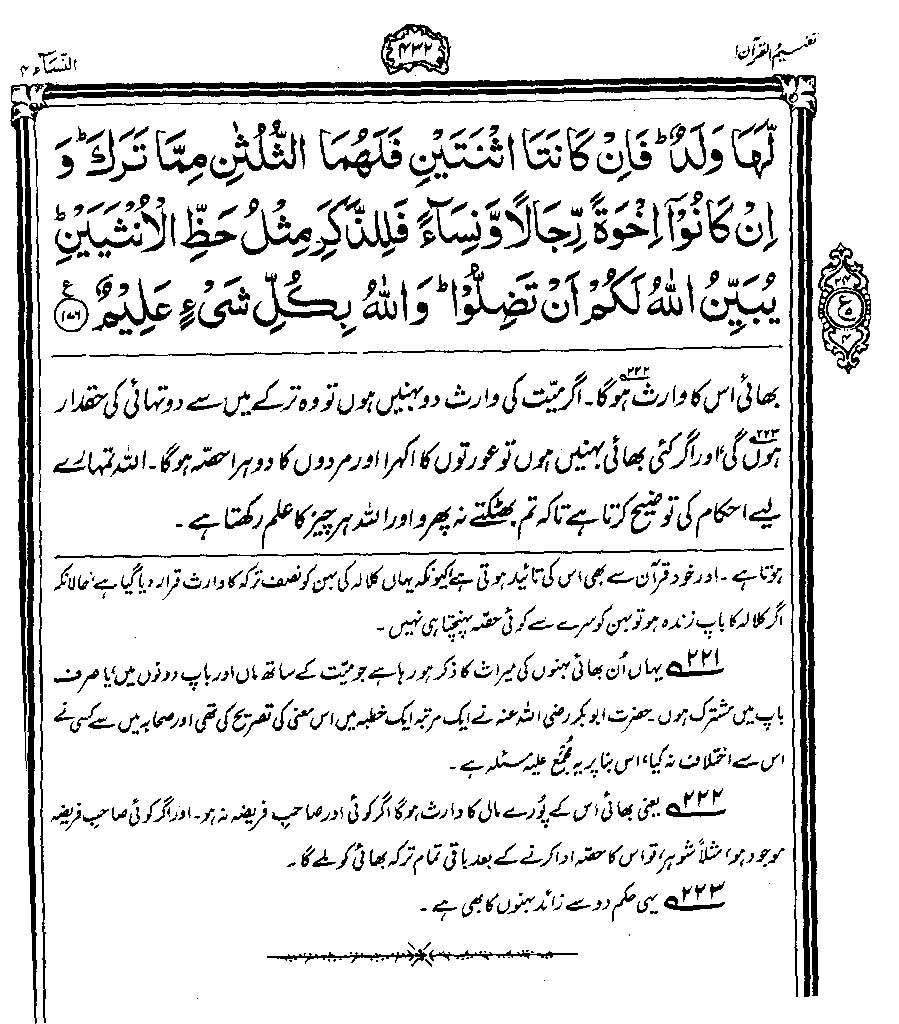 تفہیم القرآن
۴۳۲
النسآء ۴
لَّهَا وَلَدٌ ؕ فَاِنْ كَانَتَا اثْنَتَيْنِ فَلَهُمَا الثُّلُثٰنِ مِمَّا تَرَكَ ؕ وَ
اِنْ كَانُوْۤا اِخْوَةً رِّجَالًا وَّنِسَآءً فَلِلذَّكَرِ مِثْلُ حَظِّ الْاُنْثَيَيْنِ ؕ
يُبَيِّنُ اللّٰهُ لَكُمْ اَنْ تَضِلُّوْا ؕ وَاللّٰهُ بِكُلِّ شَيْءٍ عَلِيْمٌ ﴿۱۷۶﴾ ع
ع
بھائی اس کا وارث ہوگا۔ ۲۲۲ اگر میّت کی وارث دو بہنیں ہوں تو وہ ترکے میں سے دو تہائی کی حقدار
ہوں گی، ۲۲۳ اور اگر کئی بھائی بہنیں ہوں تو عورتوں کا اکہرا اور مردوں کا دوہرا حصّہ ہوگا۔ اللہ تمہارے
لیے احکام کی توضیح کرتا ہے تاکہ تم بھٹکتے نہ پھرو اور اللہ ہر چیز کا علم رکھتا ہے۔
ہوتا ہے۔ اور خود قرآن سے بھی اس کی تائید ہوتی ہے کیونکہ یہاں کلالہ کی بہن کو نصف ترکہ کا وارث قرار دیا گیا ہے، حالانکہ
اگر کلالہ کا باپ زندہ ہو تو بہن کو سرے سے کوئی حصّہ پہنچتا ہی نہیں۔
۲۲۱ یہاں اُن بھائی بہنوں کی میراث کا ذکر ہو رہا ہے جو میّت کے ساتھ ماں اور باپ دونوں میں، یا صرف
باپ میں مشترک ہوں۔ حضرت ابوبکر رضی اللہ عنہ نے ایک مرتبہ ایک خطبہ میں اس معنی کی تصریح کی تھی اور صحابہ میں سے کسی نے
اس سے اختلاف نہ کیا، اس بنا پر یہ مُجمَع علیہ مسئلہ ہے۔
۲۲۲ یعنی بھائی اس کے پُورے مال کا وارث ہوگا اگر کوئی اور صاحبِ فریضہ نہ ہو۔ اور اگر کوئی صاحبِ فریضہ
موجود ہو، مثلاً شوہر، تو اس کا حصّہ ادا کرنے کے بعد باقی تمام ترکہ بھائی کو ملے گا۔
۲۲۳ یہی حکم دو سے زائد بہنوں کا بھی ہے۔